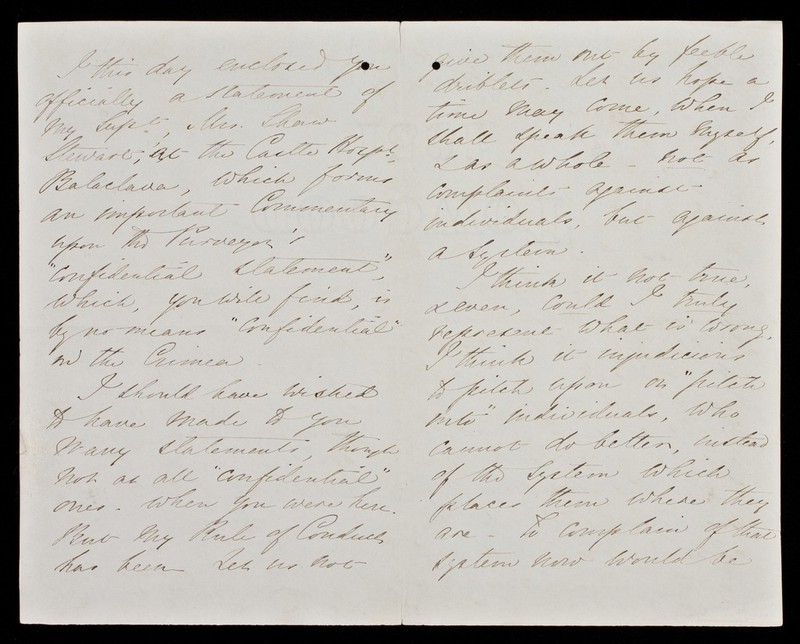 I this day enclosed you
officially a statement of
my Supt., Mrs. Shaw
Stewart, at the Castle Hospl.
Balaclava, which forms
an important Commentary
upon the Purveyor's
"Confidential Statement",
which, you will find, is
by no means "Confidential"
in the Crimea.
I should have wished
to have made to you
many statements, though
not at all "confidential"
ones - when you were here.
But my Rule of Conduct
has been - Let us not
give them out by feeble
driblets. Let us hope a
time may come, when I
shall speak them myself,
& as a whole - not as
complaints against
individuals, but against
a System.
I think it not true,
& even, could I truly
represent what is wrong,
I think it injudicious
to pitch upon or "pitch
into" individuals, who
cannot do better, instead
of the System which
places them where they
are - To complain of that
system now would be